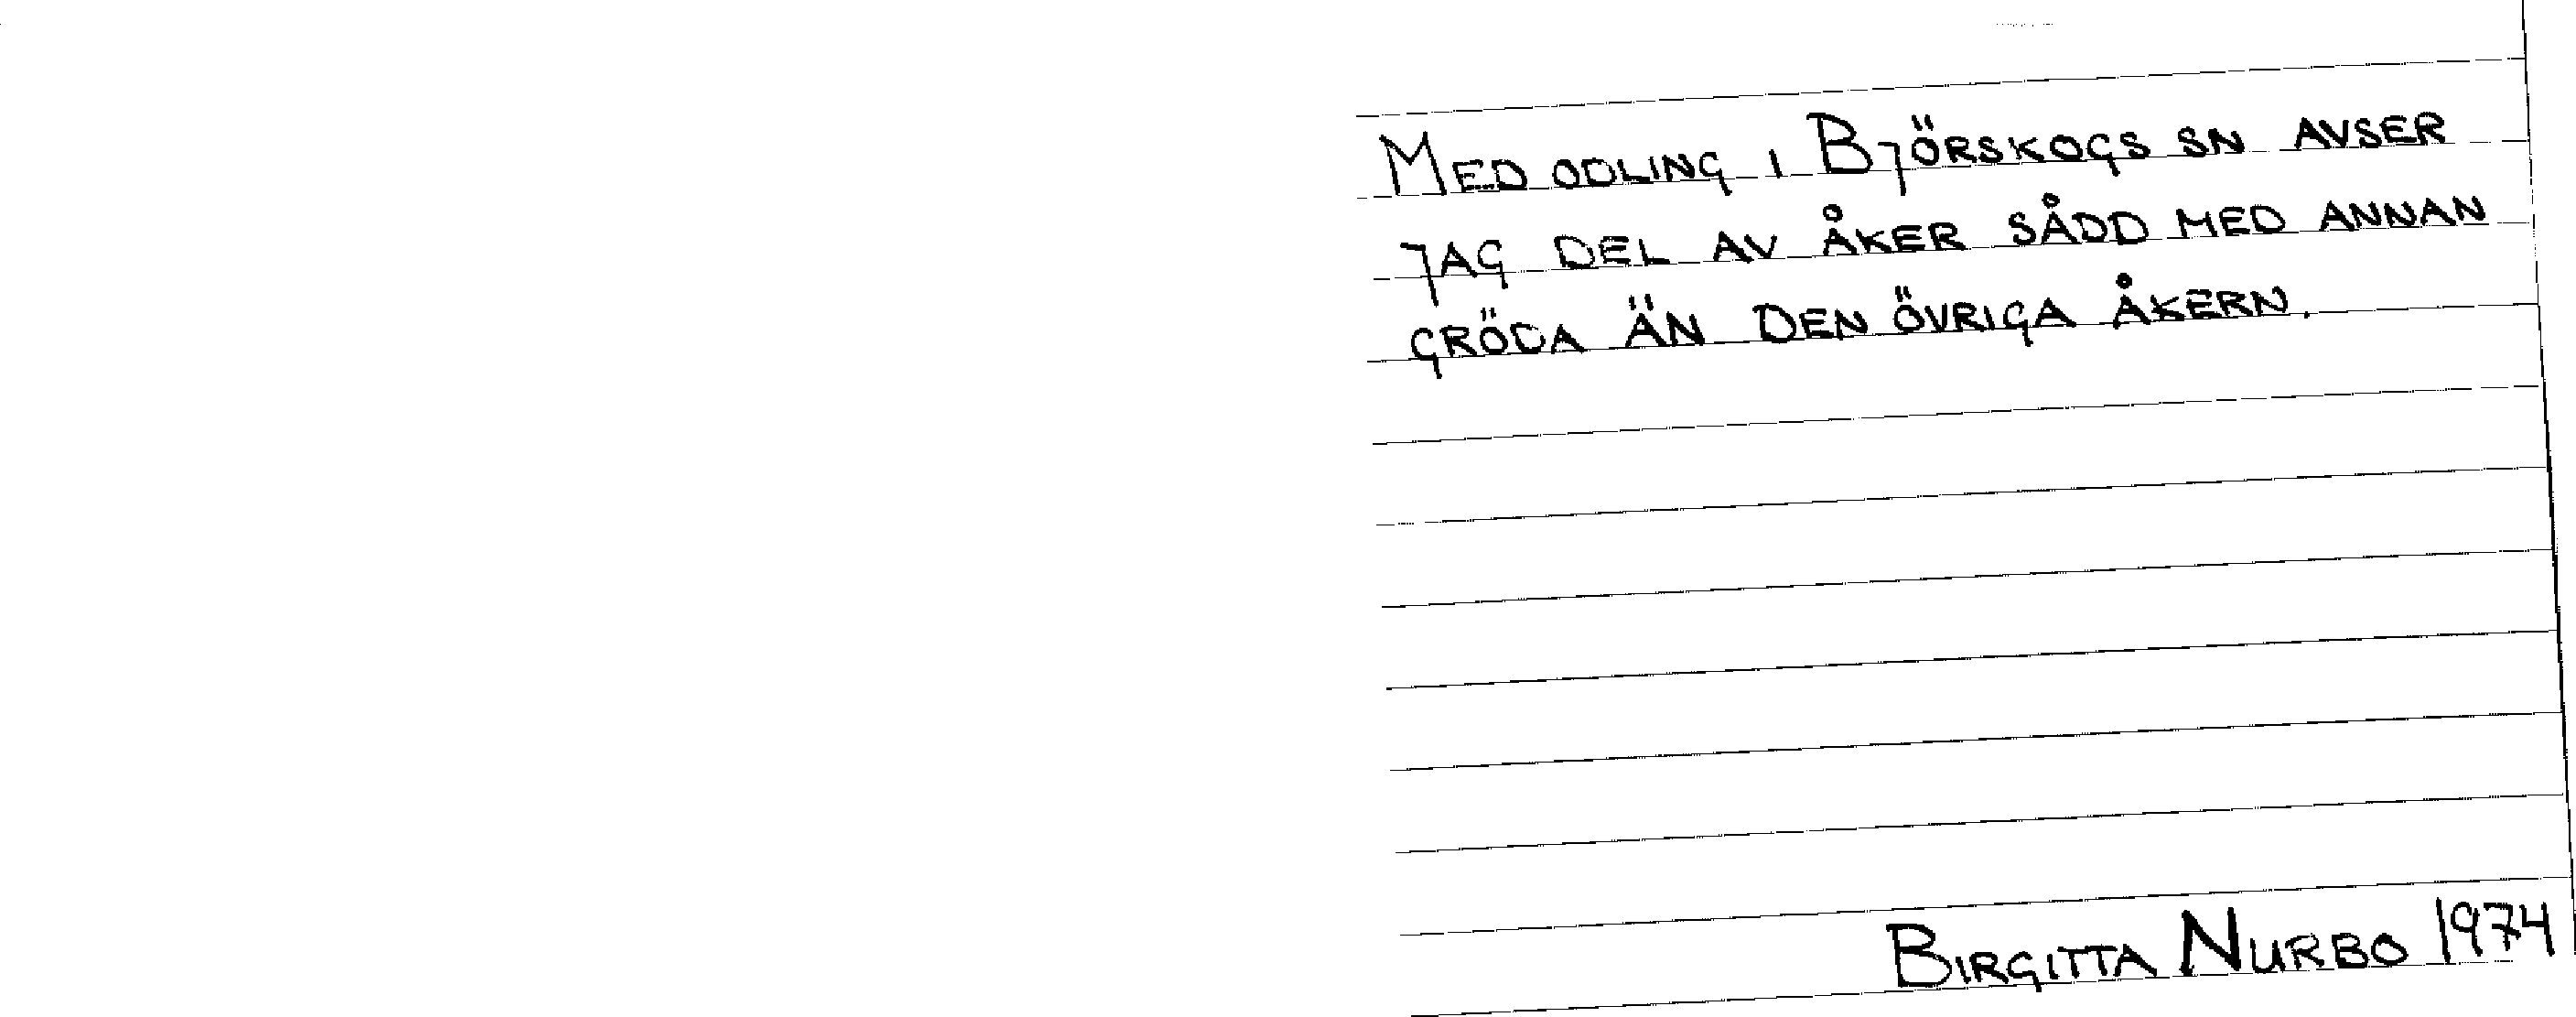 MED ODLING I BJÖRSKOGS SN AVSER
JAG DEL AV ÅKER SÅDD MED ANNAN
GRÖDA ÄN DEN ÖVRIGA ÅKERN.
BIRGITTA NURBO 1974